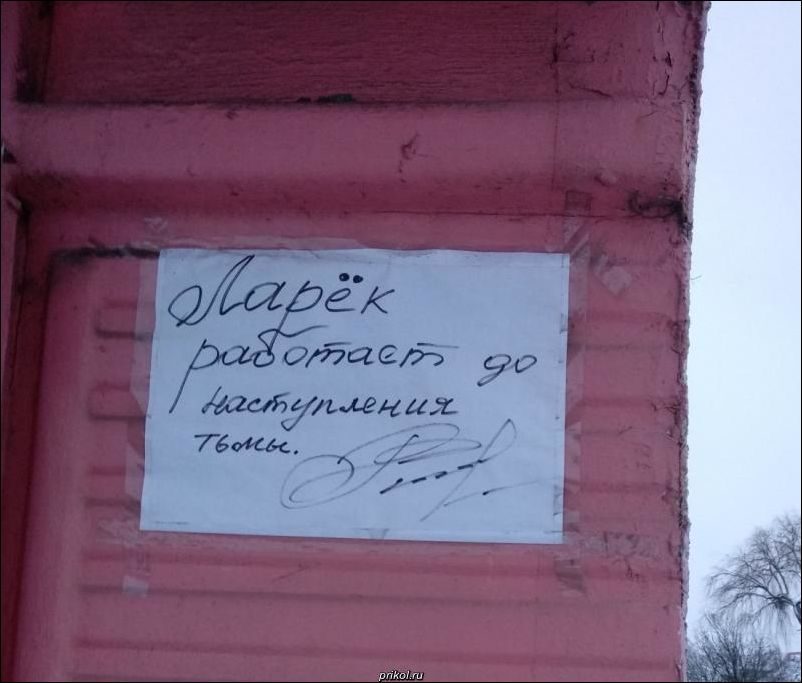 Ларёк
работает до
наступления
тьмы.
prikol.ru